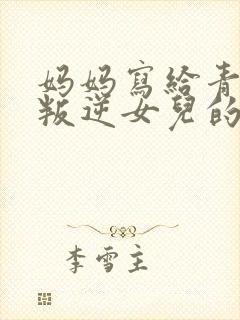 妈妈寫給青
叛逆女兒的
李雪主